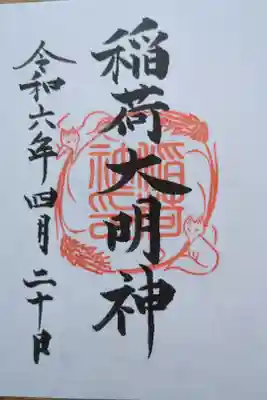 稲荷大明神
令和六年四月二十日